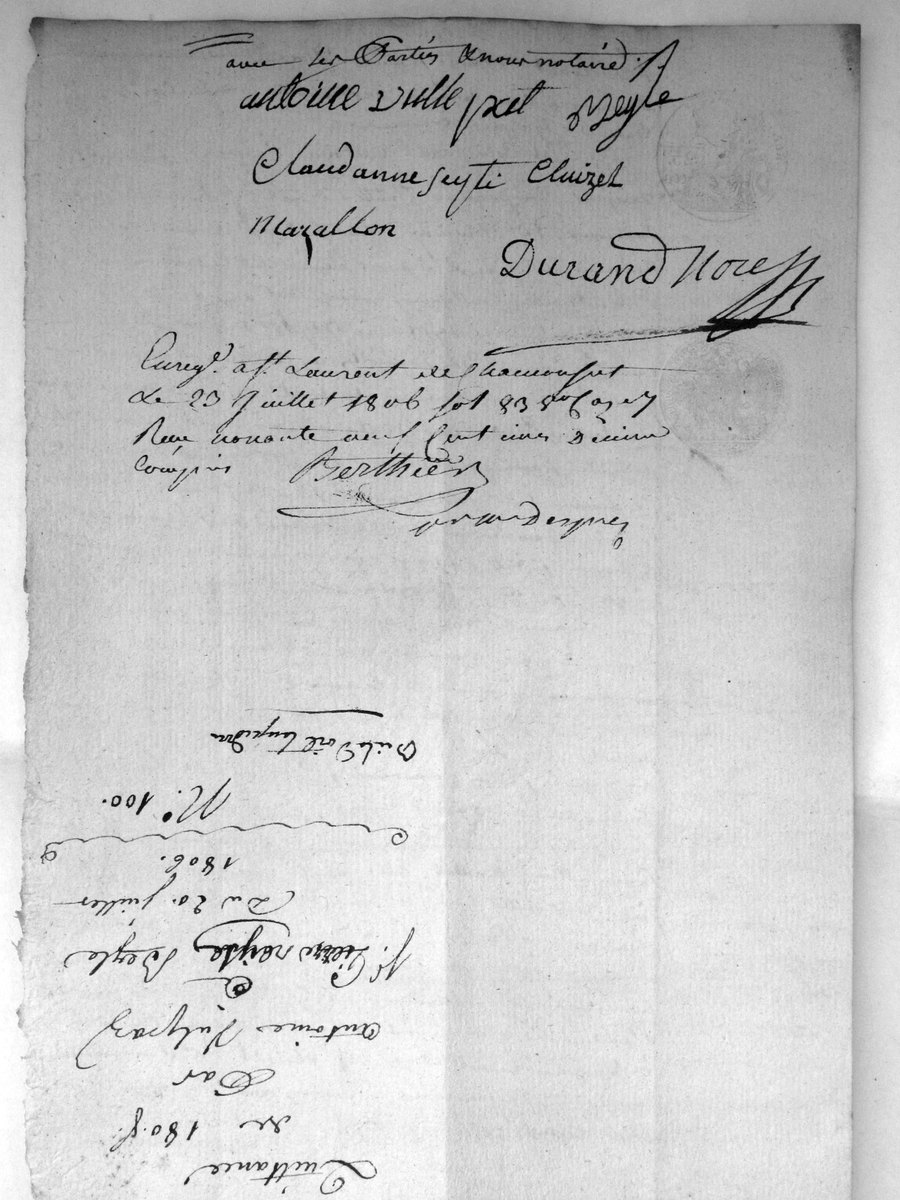 avec les Parties & nous notaire ./.
antoine vulle pat Beyle
Claudanne seyti Cluizel
Mazallon
Durand Nore
Enregé. a St. Laurent de Chamousset
Le 23 Juillet 1806 fol 83
Reçu nonante neuf Centimes Décime
Compris Berthier
Quittance
de 180 f.
Par
antoine Vulpaz
a
Sr. Pierre Beyle
Du 20. juillet
1806.
N.° 100.